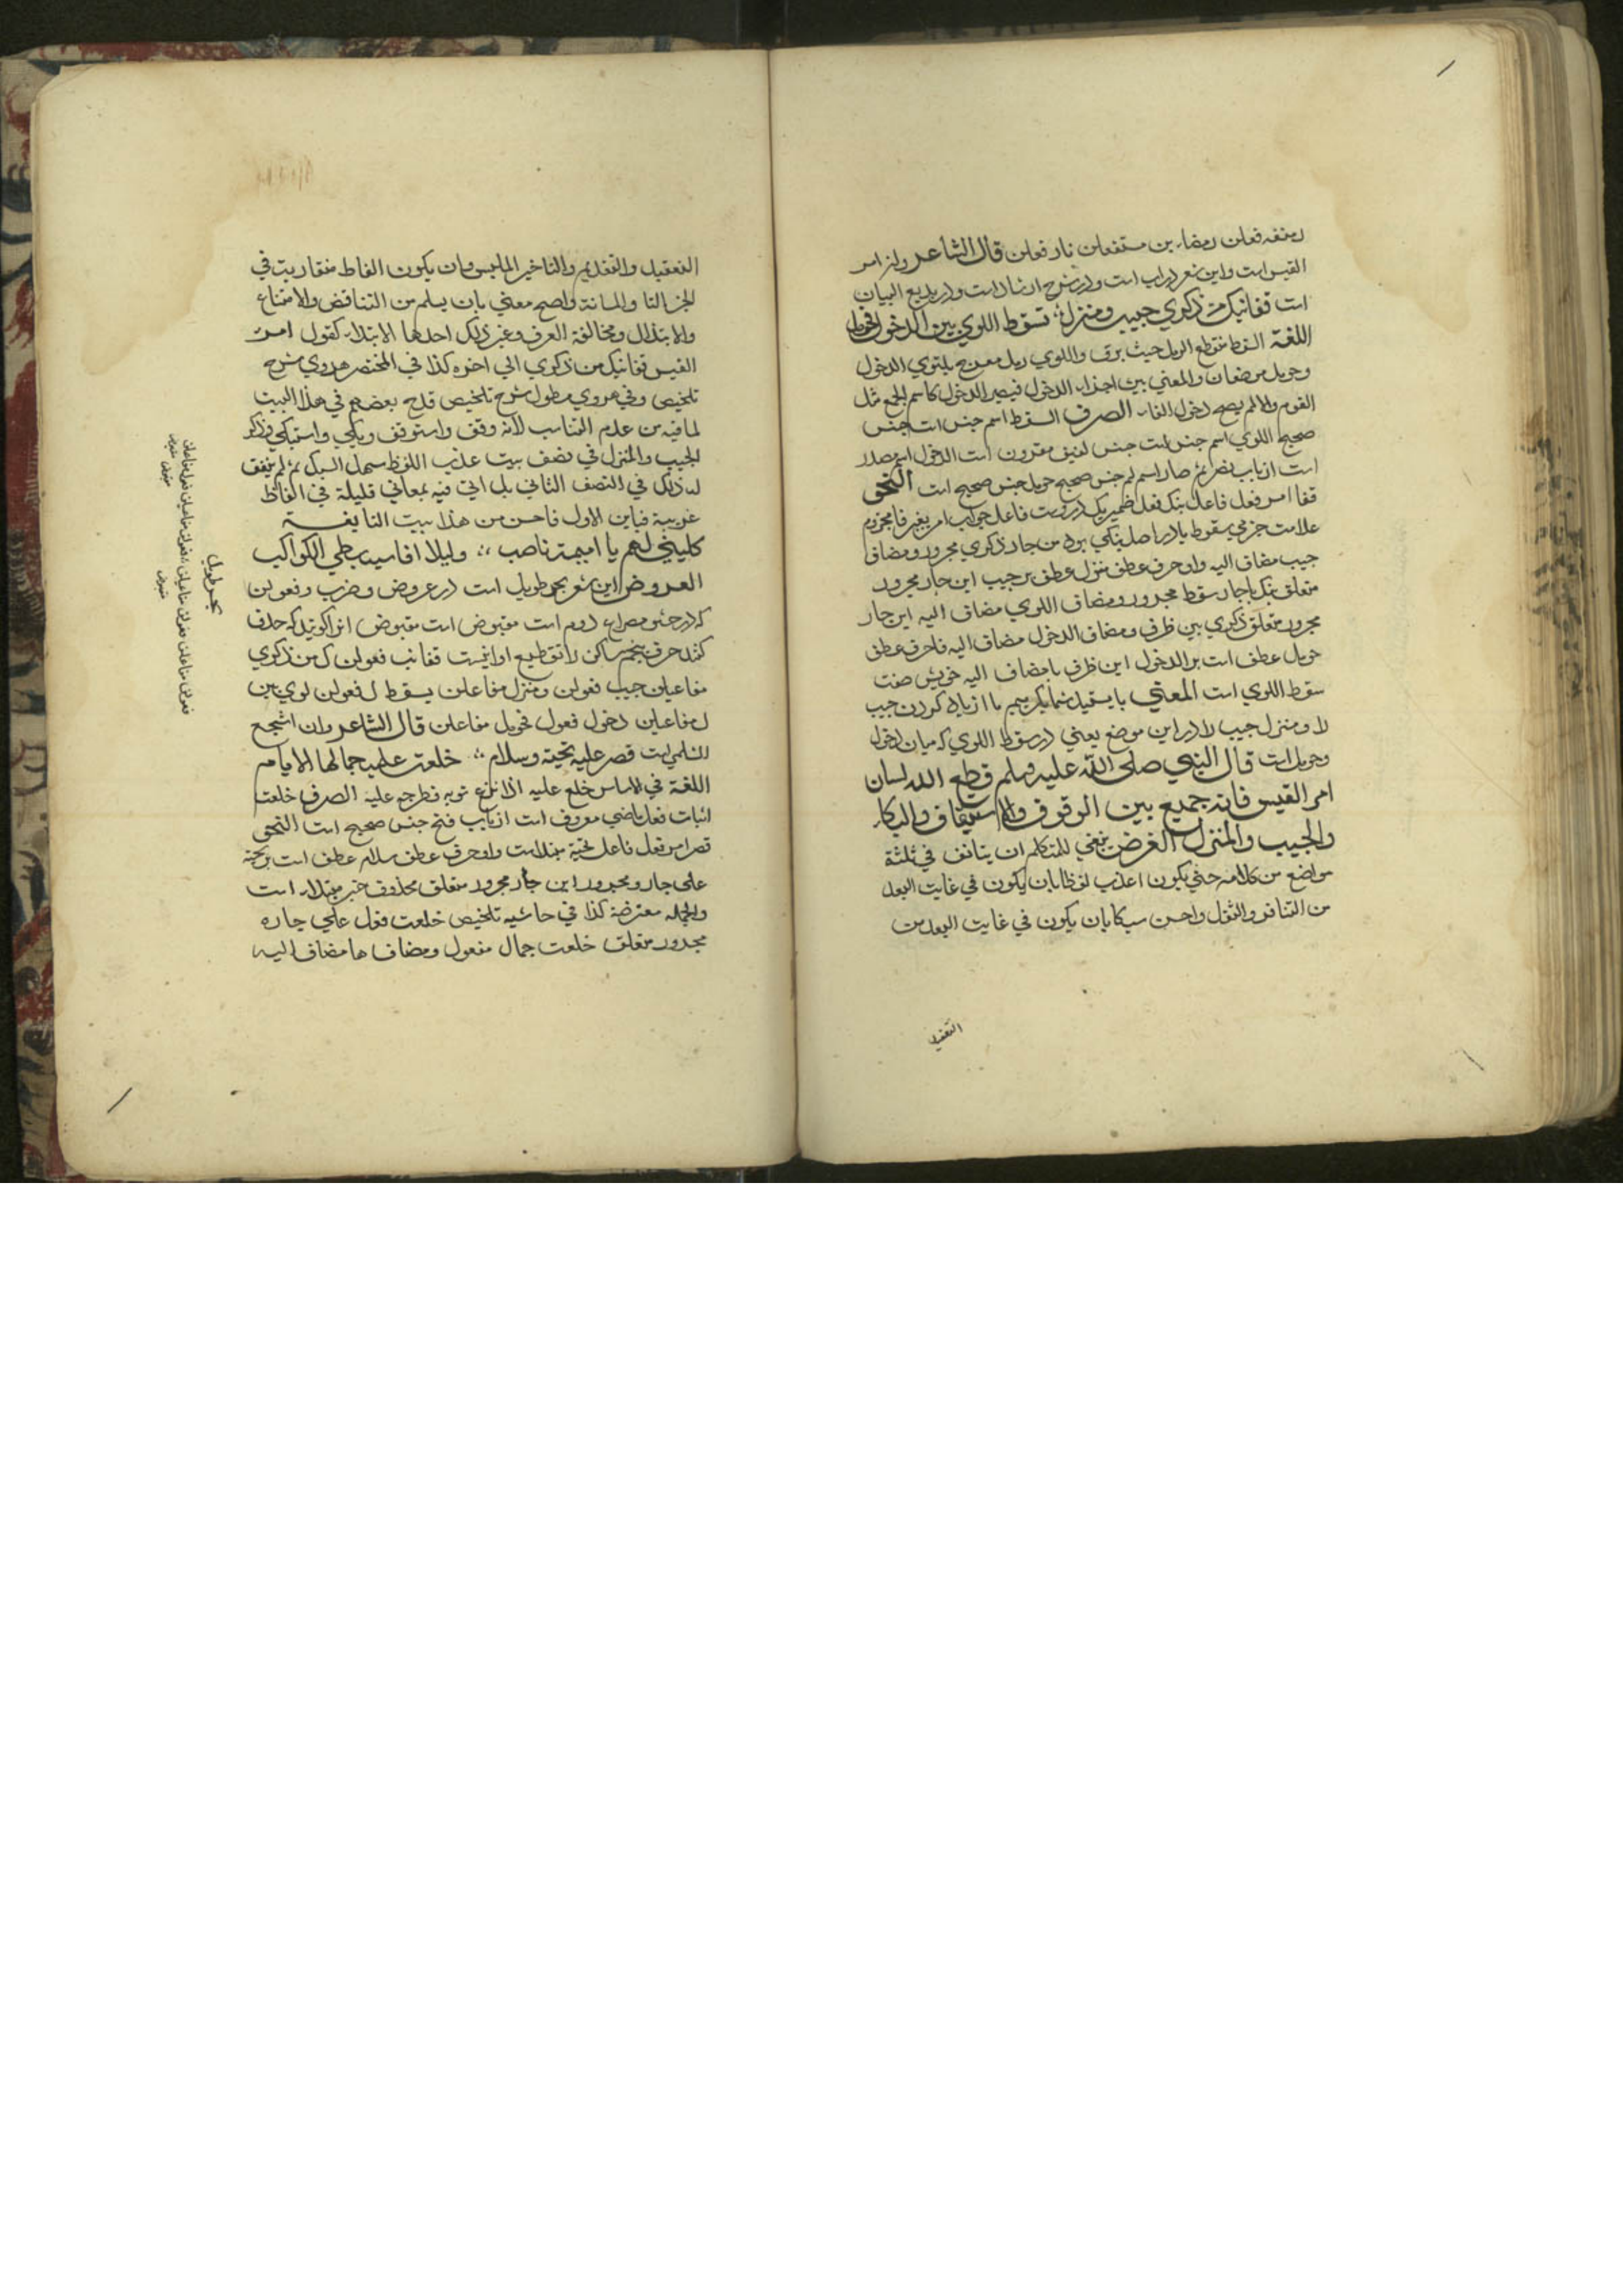 رمنفه فعلن رمضاء بن مستفعلن نار فعلن قال الشاعر وان امر
القيس است واین شعر در باب است ودر شرح ارشاد است ودر بدیع البیان
است قفانبك من ذكري حبيب ومنزل؛ بسقط اللوي بين الدخول فحومل
اللغة السقط منقطع الرمل حيث يرق واللوي رمل معوج يلتوي الدخول
وحومل موضعان والمعني بين اجزاء الدخول فيصير الدخول كاسم الجمع مثل
القوم والا لم يصح دخول الفاء الصرف السقط اسم جنس است جنس
صحيح اللوي اسم جنس است جنس لفيف مقرون است الدخول اسم مصدر
است از باب نصر ثم صار اسم لم جنس صحيح حومل جنس صحيح است النحو
قفا امر فعل فاعل نبك فعل ضمير يك در وست فاعل جواب امر بغير فا مجزوم
علامت جزمي سقوط يا در اصل نبكي بود من جار ذكري مجرور ومضاف
حبيب مضاف اليه واو حرف عطف منزل عطف بر حبيب این جار مجرور
متعلق نبك با جار سقط مجرور ومضاف اللوي مضاف اليه این جار
مجرور متعلق ذكري بين ظرف ومضاف الدخول مضاف اليه فا حرف عطف
حومل عطف است بر الدخول این ظرف با مضاف اليه خویش صفت
سقط اللوي است المعني بایستید شما بگریيم ما از یاد کردن حبیب
را ومنزل حبيب را در این موضع یعنی در سقط اللوي كه میان دخول
وحومل است قال النبي صلي الله عليه وسلم قطع الله لسان
امر القيس فانه جميع بين الوقوف والاستيقاف والبكاء
والحبيب والمنزل الغرض ينبغي للمتكلم ان يتانف في ثلثة
مواضع من كلامه حتي يكون اعذب لفظا بان يكون في غايت البعد
من التنافر والثقل واحسن سبكا بان يكون في غايت البعد من
التعقيد
التعقيد والتقديم والتاخير الملبس وان يكون الفاظ متقاربت في
الجزالتا والمتانة واصح معني بان يسلم من التناقض والامتناع
والابتذال ومخالفة العرف وغير ذلك احدها الابتداء كقول امر
القيس قفانبك من ذكري الي اخره كذا في المختصر هروي شرح
تلخيص وفي هروي مطول شرح تلخيص قدح بعضهم في هذا البيت
لما فيه من عدم التناسب لانه وقف واستوقف وبكي واستبكي وذكر
الحبيب والمنزل في نصف بيت عذب اللفظ سهل السبك ثم لم يتفق
له ذلك في النصف الثاني بل اتي فيه بمعاني قليلة في الفاظ
غريبة فباين الاول فاحسن من هذا بيت النابغة
كليني لهم يا اميمة ناصب ؛ وليلا اقاسيه بطي الكواكب
العروض این شعر بحر طویل است در عروض وضرب وفعولن
كه در حشو مصراع دوم است مقبوض است مقبوض انرا گویند كه حذف
كنند حرف پنجم ساكن را تقطیع او اینست قفانب فعولن ك من ذكري
مفاعيلن حبيب فعولن ومنزل مفاعلن بسقط ل فعولن لوي بين
ل مفاعيلن دخول فعول فحومل مفاعلن قال الشاعر وان اشجع
السلمي است قصر عليه تحية وسلام ؛ خلعت عليه جمالها الايام
اللغة في الاساس خلع عليه اذا نزع ثوبه فطرحه عليه الصرف خلعت
اثبات فعل ماضي معروف است از باب فتح جنس صحيح است النحو
على جار ومجرور این جار مجرور متعلق محذوف خبر مبتداء است
والجملة معترضة كذا في حاشیه تلخیص خلعت فعل علي جاره
مجرور متعلق خلعت جمال مفعول ومضاف ها مضاف اليه
بحر طویل